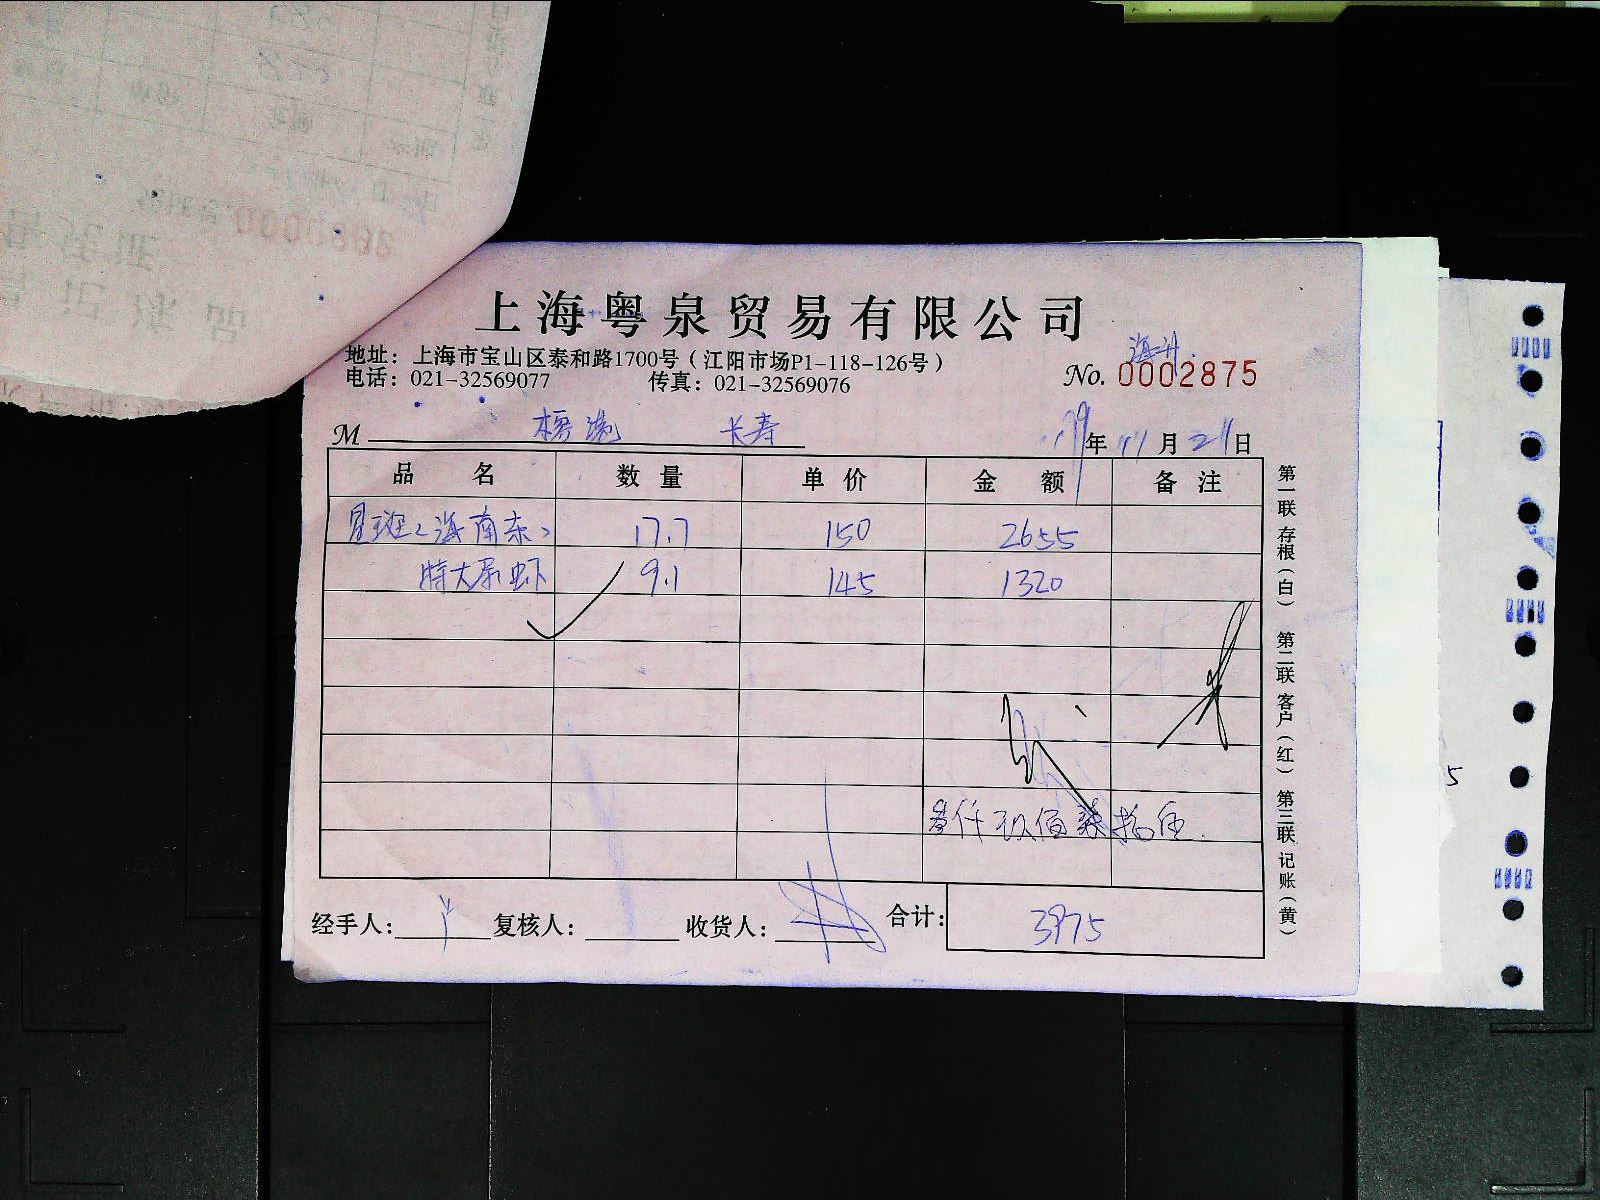 上海粤泉贸易有限公司
地址：上海市宝山区泰和路1700号（江阳市场P1-118-126号）
电话：021-32569077 传真：021-32569076
No. 0002875
M 长寿 19年11月21日
品名 数量 单价 金额 备注
星斑（海南东） 17.7 150 2655
特大尿虾 9.1 145 1320
叁仟玖佰柒拾伍
经手人： 复核人： 收货人： 合计： 3975
第一联 存根（白） 第二联 客户（红） 第三联 记账（黄）